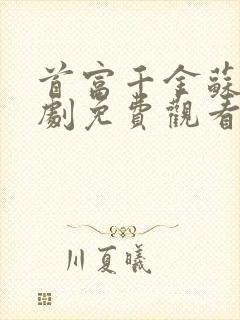 首富千金蘇
劇免費觀看
川夏曦